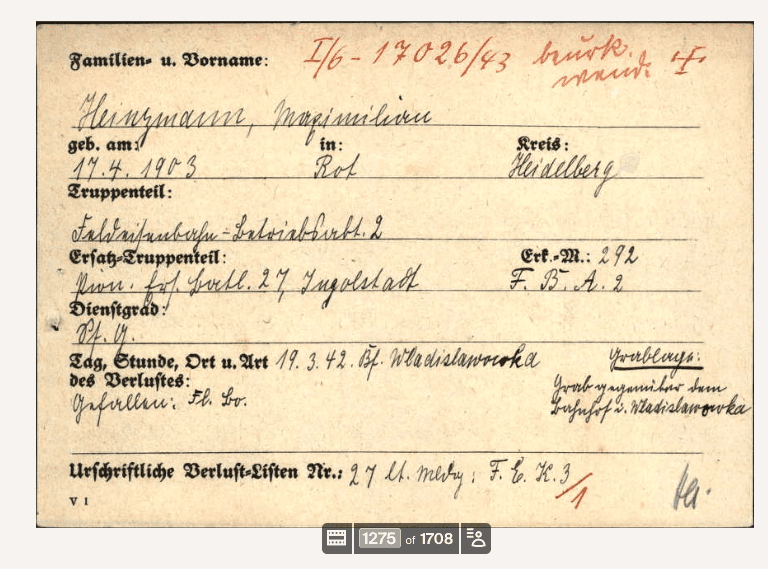 Familien- u. Vorname: I/6 - 17026/43 beurk.
wend.
Heinzmann, Maximilian
geb. am: in: Kreis:
17.4. 1903 Rot Heidelberg
Truppenteil:
Feldeisenbahn-Betriebsabt. 2
Ersatz-Truppenteil: Erk.-M.: 292
Pion. Ers. Batl. 27, Ingolstadt F. B. A. 2
Dienstgrad:
Tag, Stunde, Ort u. Art 19.3.42. Bf. Wladislawowka Grablage:
des Verlustes: Grab gegenüber dem
Gefallen: Fl. Bo. Bahnhof i. Wladislawowka
Urschriftliche Verlust-Listen Nr.: 27 lt. Meldg: F. E. K. 3
/1
V I
1275 of 1708